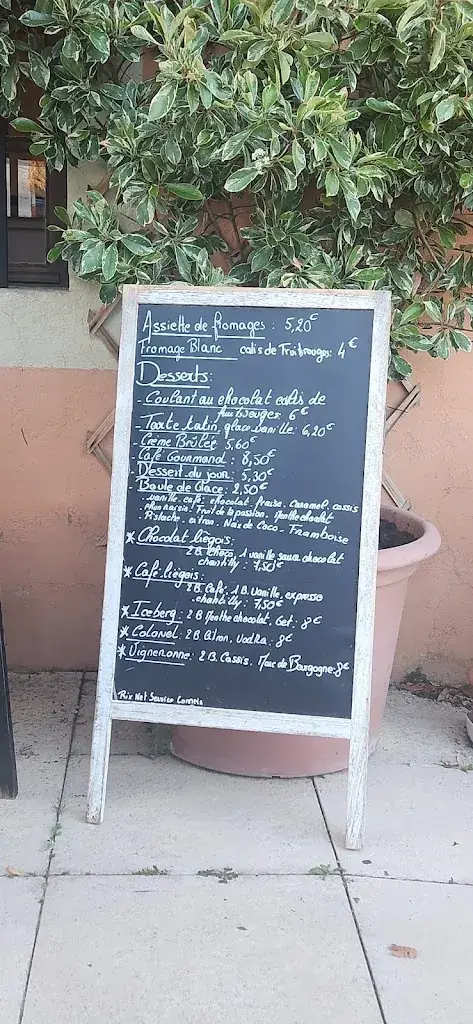 Assiette de fromages : 5,20€
Fromage Blanc coulis de Fruits rouges : 4€
Desserts :
- Coulant au chocolat coulis de
fruits rouges 6€
- Tarte tatin, glace vanille : 6,20€
- Crème Brûlée 5,60€
Café Gourmand : 8,50€
Dessert du jour : 5,30€
Boule de Glace : 2,50€
vanille. café. chocolat fraise. Caramel. cassis
Rhum raisin. Fruit de la passion. Menthe chocolat
Pistache. citron. Noix de Coco - Framboise
* Chocolat liégois :
2 B. choco, 1 vanille, sauce chocolat
chantilly : 7,50€
* Café liégois :
2 B. Café, 1 B. Vanille, expresso
chantilly : 7,50€
* Iceberg : 2 B Menthe chocolat, Get : 8€
* Colonel : 2 B Citron. Vodka : 8€
* Vigneronne : 2 B. Cassis. Marc de Bourgogne 8€
Prix Net Service Compris